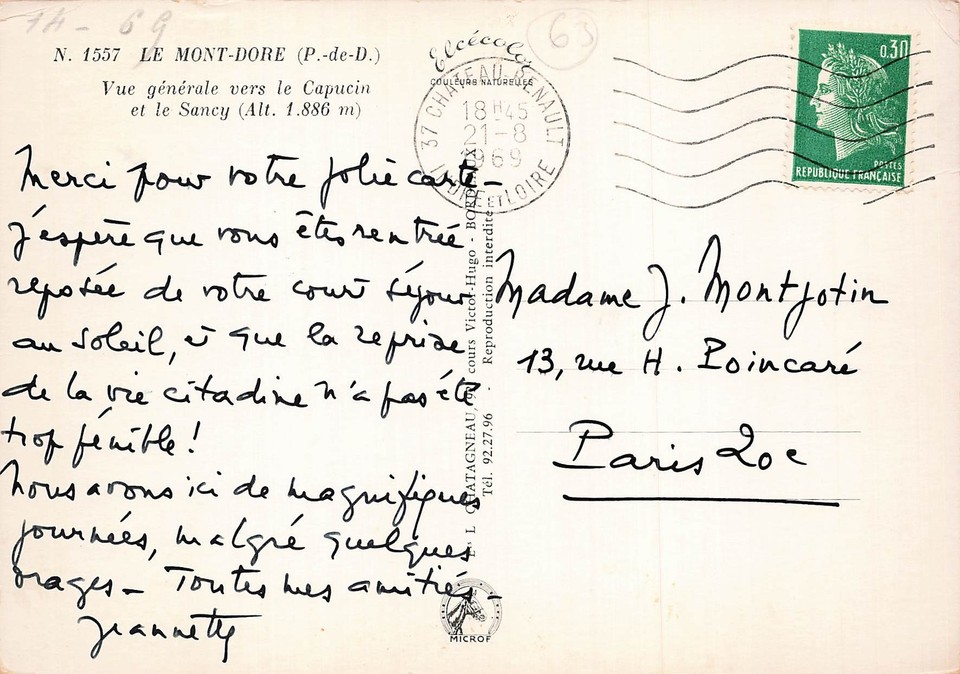 14 - 69
63
N. 1557 LE MONT-DORE (P.-de-D.)
Vue générale vers le Capucin
et le Sancy (Alt. 1.886 m)
Elcécolor
COULEURS NATURELLES
37 CHATEAU-RENAULT
18H45
21-8
1969
INDRE ET LOIRE
0,30
POSTES
REPUBLIQUE FRANÇAISE
Merci pour votre jolie carte -
j'espère que vous êtes rentrée
reposée de votre court séjour
au soleil, et que la reprise
de la vie citadine n'a pas été
trop pénible !
Nous avons ici de magnifiques
journées, malgré quelques
orages - Toutes mes amitiés -
Jeannette
CHATAGNEAU, cours Victor-Hugo - BORDEAUX
Tél. 92.27.96 - Reproduction interdite
MICROF
Madame J. Montjotin
13, rue H. Poincaré
Paris 20e